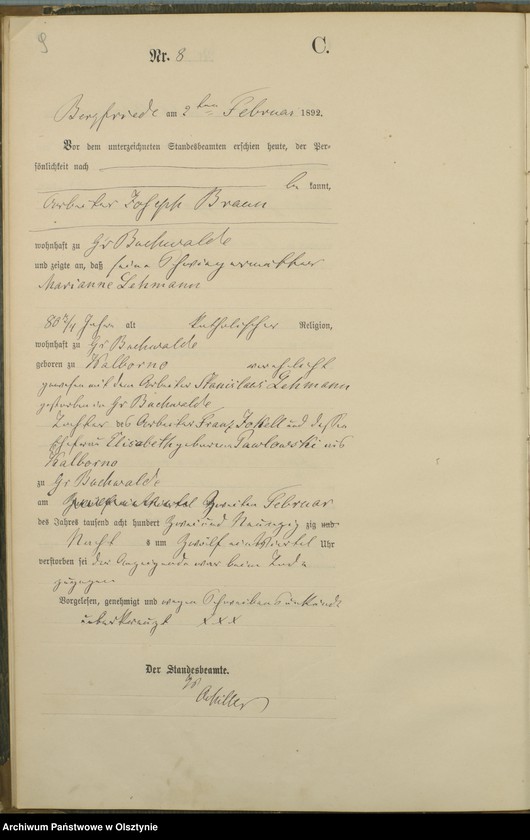 9
C.
Nr. 8
Bergfriede am 2ten Februar 1892.
Vor dem unterzeichneten Standesbeamten erschien heute, der Per-
sönlichkeit nach
be kannt,
Arbeiter Joseph Braun
wohnhaft zu Gr Buchwalde
und zeigte an, daß seine Schwiegermutter
Marianne Lehmann
80 3/4 Jahre alt katholischer Religion,
wohnhaft zu Gr Buchwalde
geboren zu Kalborno verehelicht
gewesen mit dem Arbeiter Stanislaus Lehmann
gestorben in Gr Buchwalde
Tochter des Arbeiter Franz und dessen
Ehefrau Elisabeth geborenen Pawlowski aus
Kalborno
zu Gr Buchwalde
am zweiten Februar
des Jahres tausend acht hundert zwei und Neunzig zig und
Nacht s um Zwölf einviertel Uhr
verstorben sei der Anzeigende war beim Tode
zugegen
Vorgelesen, genehmigt und wegen Schreibensunkunde
unterkreuzt XXX
Der Standesbeamte.
Archiwum Państwowe w Olsztynie